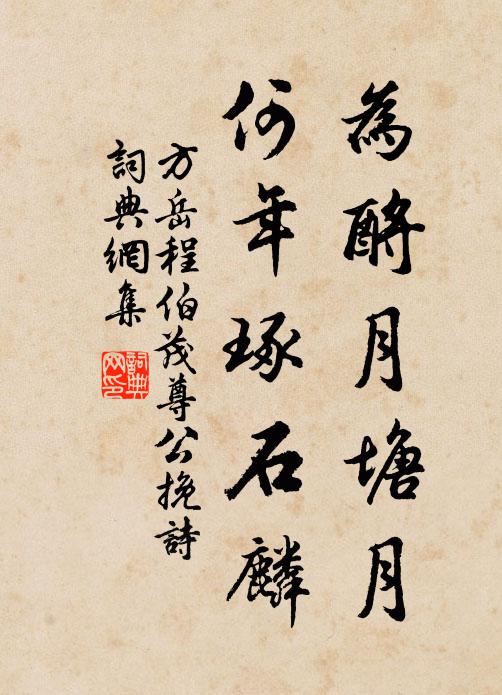 為酹月塘月
何年琢石麟
方岳程伯茂尊公挽詩
詞典網集
詞典網印